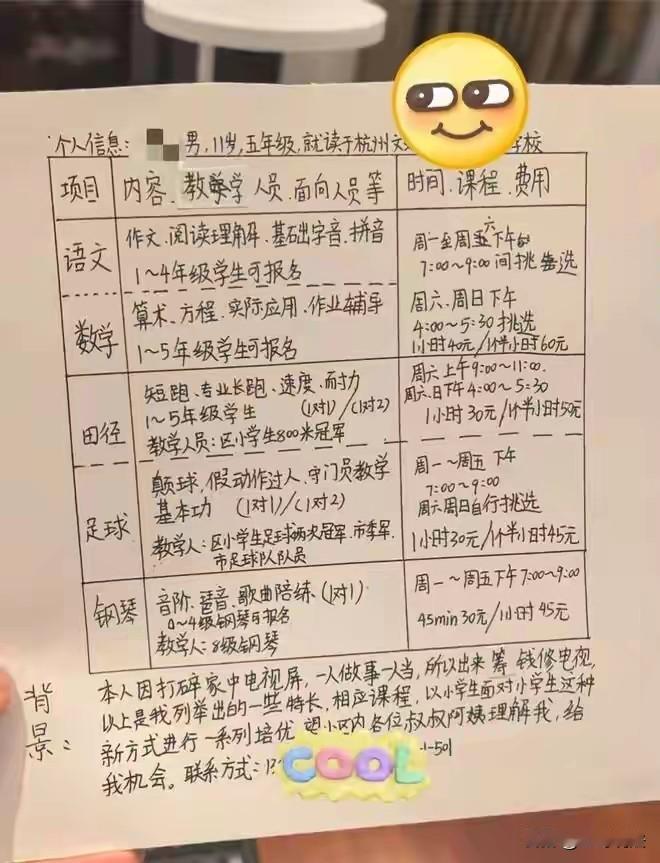 个人信息: 男,11岁,五年级,就读于杭州文 学校
项目 内容、教学人员、面向人员等 时间、课程、费用
语文 作文、阅读理解、基础字音、拼音
1~4年级学生可报名
周一至周五下午
六
7:00~9:00 间挑选
数学 算术、方程、实际应用、作业辅导
1~5年级学生可报名
周六、周日下午
4:00~5:30 挑选
1小时40元/1个半小时60元
田径 短跑、专业长跑、速度、耐力
1~5年级学生 (1对1)/(1对2)
教学人员:区小学生800米冠军
周六上午9:00~11:00.
周六.日下午4:00~5:30
1小时30元/1个半小时50元
足球 颠球,假动作过人、守门员教学
基本功 (1对1)/(1对2)
教学人:区小学生足球两次冠军、市季军
市足球队队员
周一~周五下午
7:00~9:00
周六周日自行挑选
1小时30元/1个半小时45元
钢琴 音阶、琶音、歌曲陪练、(1对1)
0~4级钢琴可报名
教学人:8级钢琴
周一~周五下午7:00~9:00
45min 30元/1小时45元
背景:
本人因打碎家中电视屏,一人做事一人当,所以出来筹钱修电视,
以上是我列举出的一些特长,相应课程,以小学生面对小学生这种
新方式进行一系列培优,望小区内各位叔叔阿姨理解我,给
我机会。联系方式:1 -501
COOL